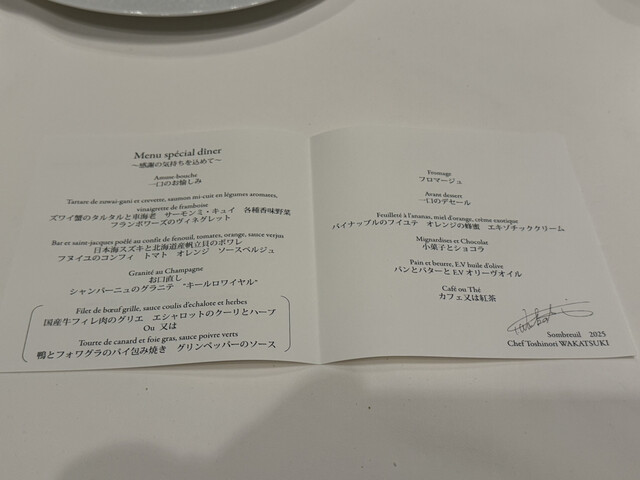 Menu spécial dîner
～感謝の気持ちを込めて～
Amuse-bouche
一口のお愉しみ
Tartare de zuwai-gani et crevette, saumon mi-cuit en légumes aromates,
vinaigrette de framboise
ズワイ蟹のタルタルと車海老　サーモンミ・キュイ　各種香味野菜
フランボワーズのヴィネグレット
Bar et saint-jacques poêlé au confit de fenouil, tomates, orange, sauce verjus
日本海スズキと北海道産帆立貝のポワレ
フヌイユのコンフィ　トマト　オレンジ　ソースベルジュ
Granité au Champagne
お口直し
シャンパーニュのグラニテ　“キールロワイヤル”
Filet de bœuf grille, sauce coulis d'echalote et herbes
国産牛フィレ肉のグリエ　エシャロットのクーリとハーブ
Ou　又は
Tourte de canard et foie gras, sauce poivre verts
鴨とフォワグラのパイ包み焼き　グリンペッパーのソース
Fromage
フロマージュ
Avant dessert
一口のデセール
Feuilleté à l'ananas, miel d'orange, crème exotique
パイナップルのフイユテ　オレンジの蜂蜜　エキゾチッククリーム
Mignardises et Chocolat
小菓子とショコラ
Pain et beurre, E.V huile d'olive
パンとバターと E.V オリーヴオイル
Café ou Thé
カフェ又は紅茶
Sombreuil　2025
Chef Toshinori WAKATSUKI